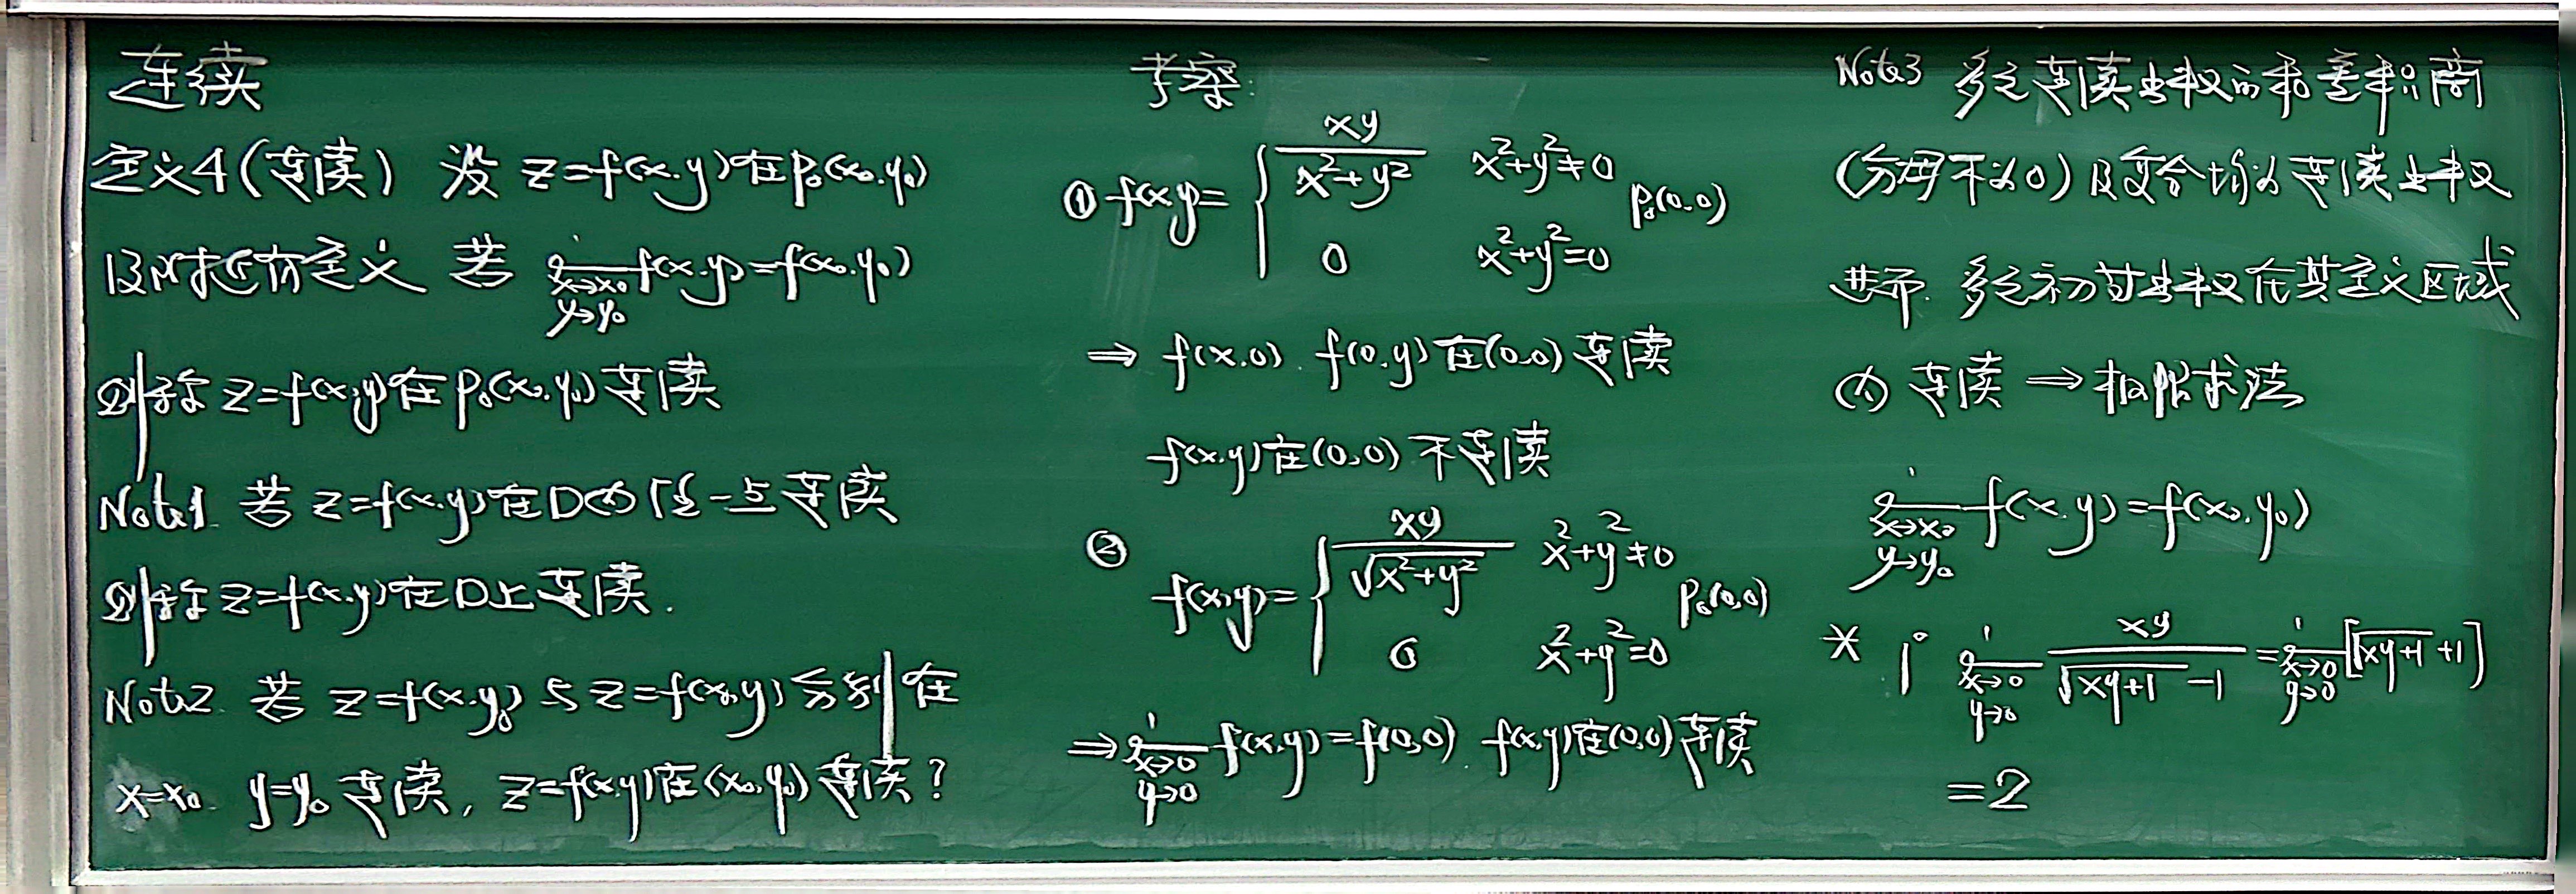 连续
定义4(连续) 设 z=f(x.y)在P₀(x₀.y₀)
及附近有定义 若 lim_{x→x₀ y→y₀} f(x.y)=f(x₀.y₀)
则称 z=f(x,y)在P₀(x₀.y₀)连续
Note1. 若 z=f(x.y)在D内任一点连续
则称z=f(x.y)在D上连续.
Note2. 若 z=f(x.y₀)与z=f(x₀,y)分别在
x=x₀. y=y₀连续, z=f(x.y)在(x₀.y₀)连续?
考察:
① f(x.y)= { xy/(x²+y²) x²+y²≠0
0 x²+y²=0
P₀(0.0)
⇒ f(x.0). f(0.y)在(0.0)连续
f(x.y)在(0.0)不连续
②
f(x,y)= { xy/√(x²+y²) x²+y²≠0
0 x²+y²=0
P₀(0,0)
⇒ lim_{x→0 y→0} f(x,y)=f(0,0). f(x.y)在(0.0)连续
Note3 多元连续函数的和差积商
(分母不为0)及复合均为连续函数
进而. 多元初等函数在其定义区域
内连续 ⇒ 极限求法
lim_{x→x₀ y→y₀} f(x.y)=f(x₀.y₀)
* 1° lim_{x→0 y→0} xy/(√(xy+1) -1) = lim_{x→0 y→0} [√(xy+1) +1]
=2